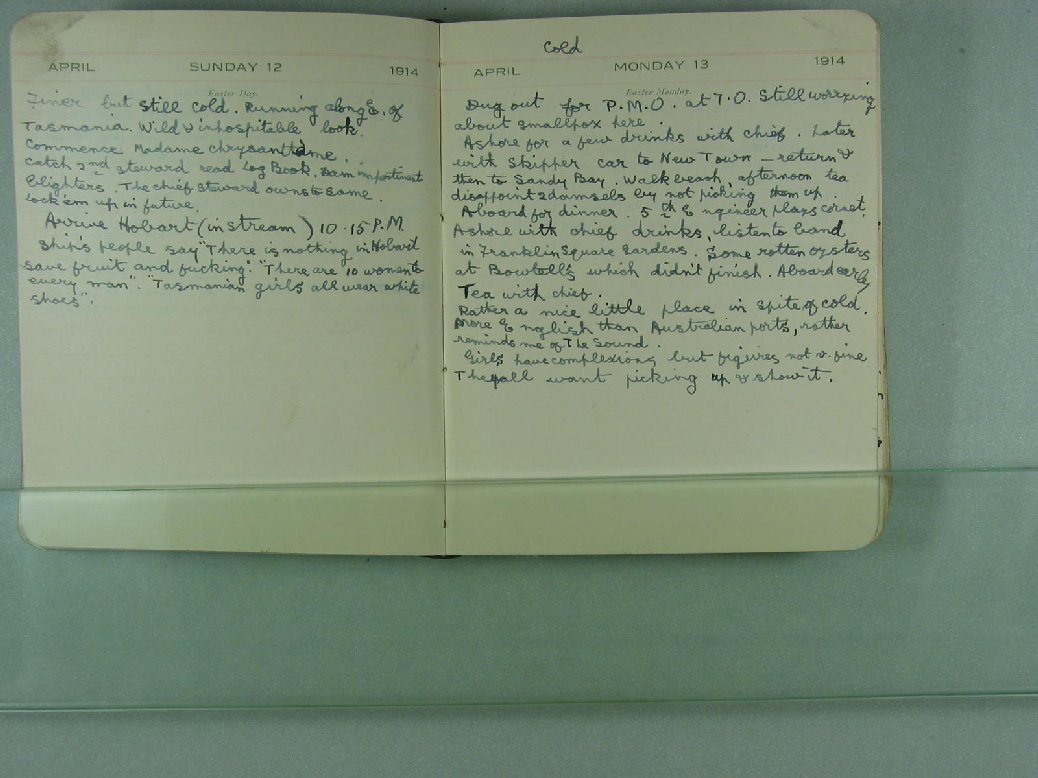 APRIL SUNDAY 12 1914
Easter Day.
Finer but still cold. Running along E. of
Tasmania. Wild & inhospitable look.
Commence Madame chrysanthème.
Catch 2nd steward read Log Book. Dam impertinent
Blighters. The chief steward owns to same.
Lock em up in future.
Arrive Hobart (in stream) 10.15 P.M.
Ship's people say "There is nothing in Hobart
save fruit and fucking". "There are 10 women to
every man". "Tasmanian girls all wear white
shoes".
Cold
APRIL MONDAY 13 1914
Easter Monday.
Dug out for P.M.O. at 7.0. Still worrying
about smallpox here.
Ashore for a few drinks with chief. Later
with Skipper car to New Town - return &
then to Sandy Bay. Walk beach, afternoon tea
disappoint 2 damsels by not picking them up
Aboard for dinner. 5th Engineer plays cornet.
Ashore with chief drinks, listen to band
in Franklin Square Gardens. Some rotten oysters
at Bowtell's which didn't finish. Aboard early
Tea with chief.
Rather a nice little place in spite of cold.
More English than Australian ports, rather
reminds me of The Sound.
Girls have complexions but figures not v. fine
They all want picking up & show it.